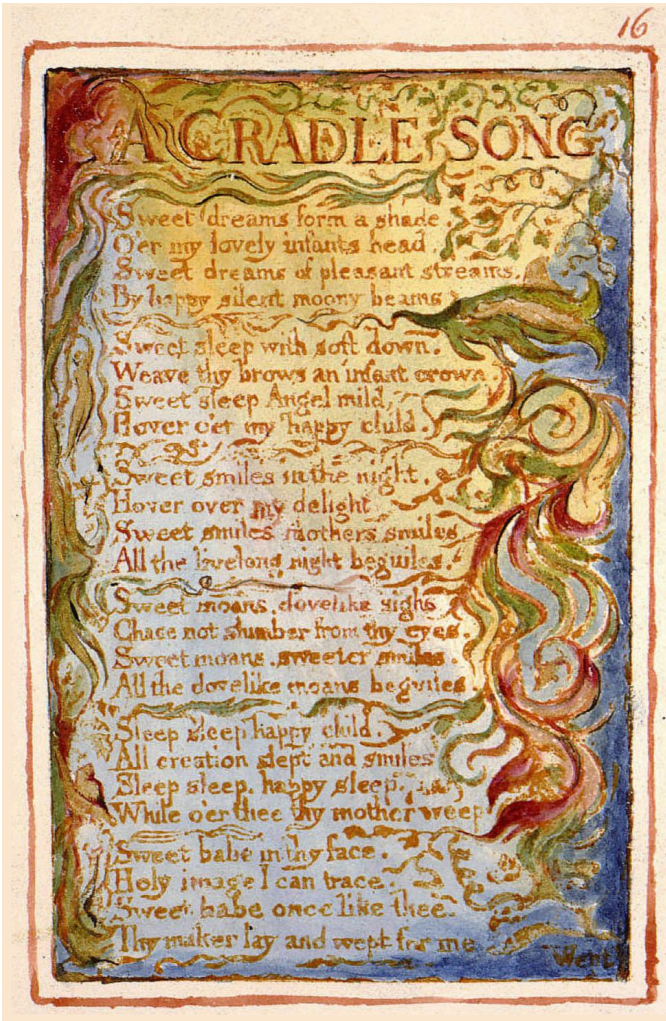 16
A CRADLE SONG
Sweet dreams form a shade
O'er my lovely infants head
Sweet dreams of pleasant streams,
By happy silent moony beams
Sweet sleep with soft down.
Weave thy brows an infant crown
Sweet sleep Angel mild,
Hover o'er my happy child.
Sweet smiles in the night.
Hover over my delight
Sweet smiles mothers smiles
All the livelong night beguiles.
Sweet moans, dovelike sighs
Chase not slumber from thy eyes.
Sweet moans, sweeter smiles.
All the dovelike moans beguiles.
Sleep sleep happy child.
All creation slept and smiles
Sleep sleep, happy sleep,
While o'er thee thy mother weep
Sweet babe in thy face.
Holy image I can trace.
Sweet babe once like thee.
Thy maker lay and wept for me
Wept